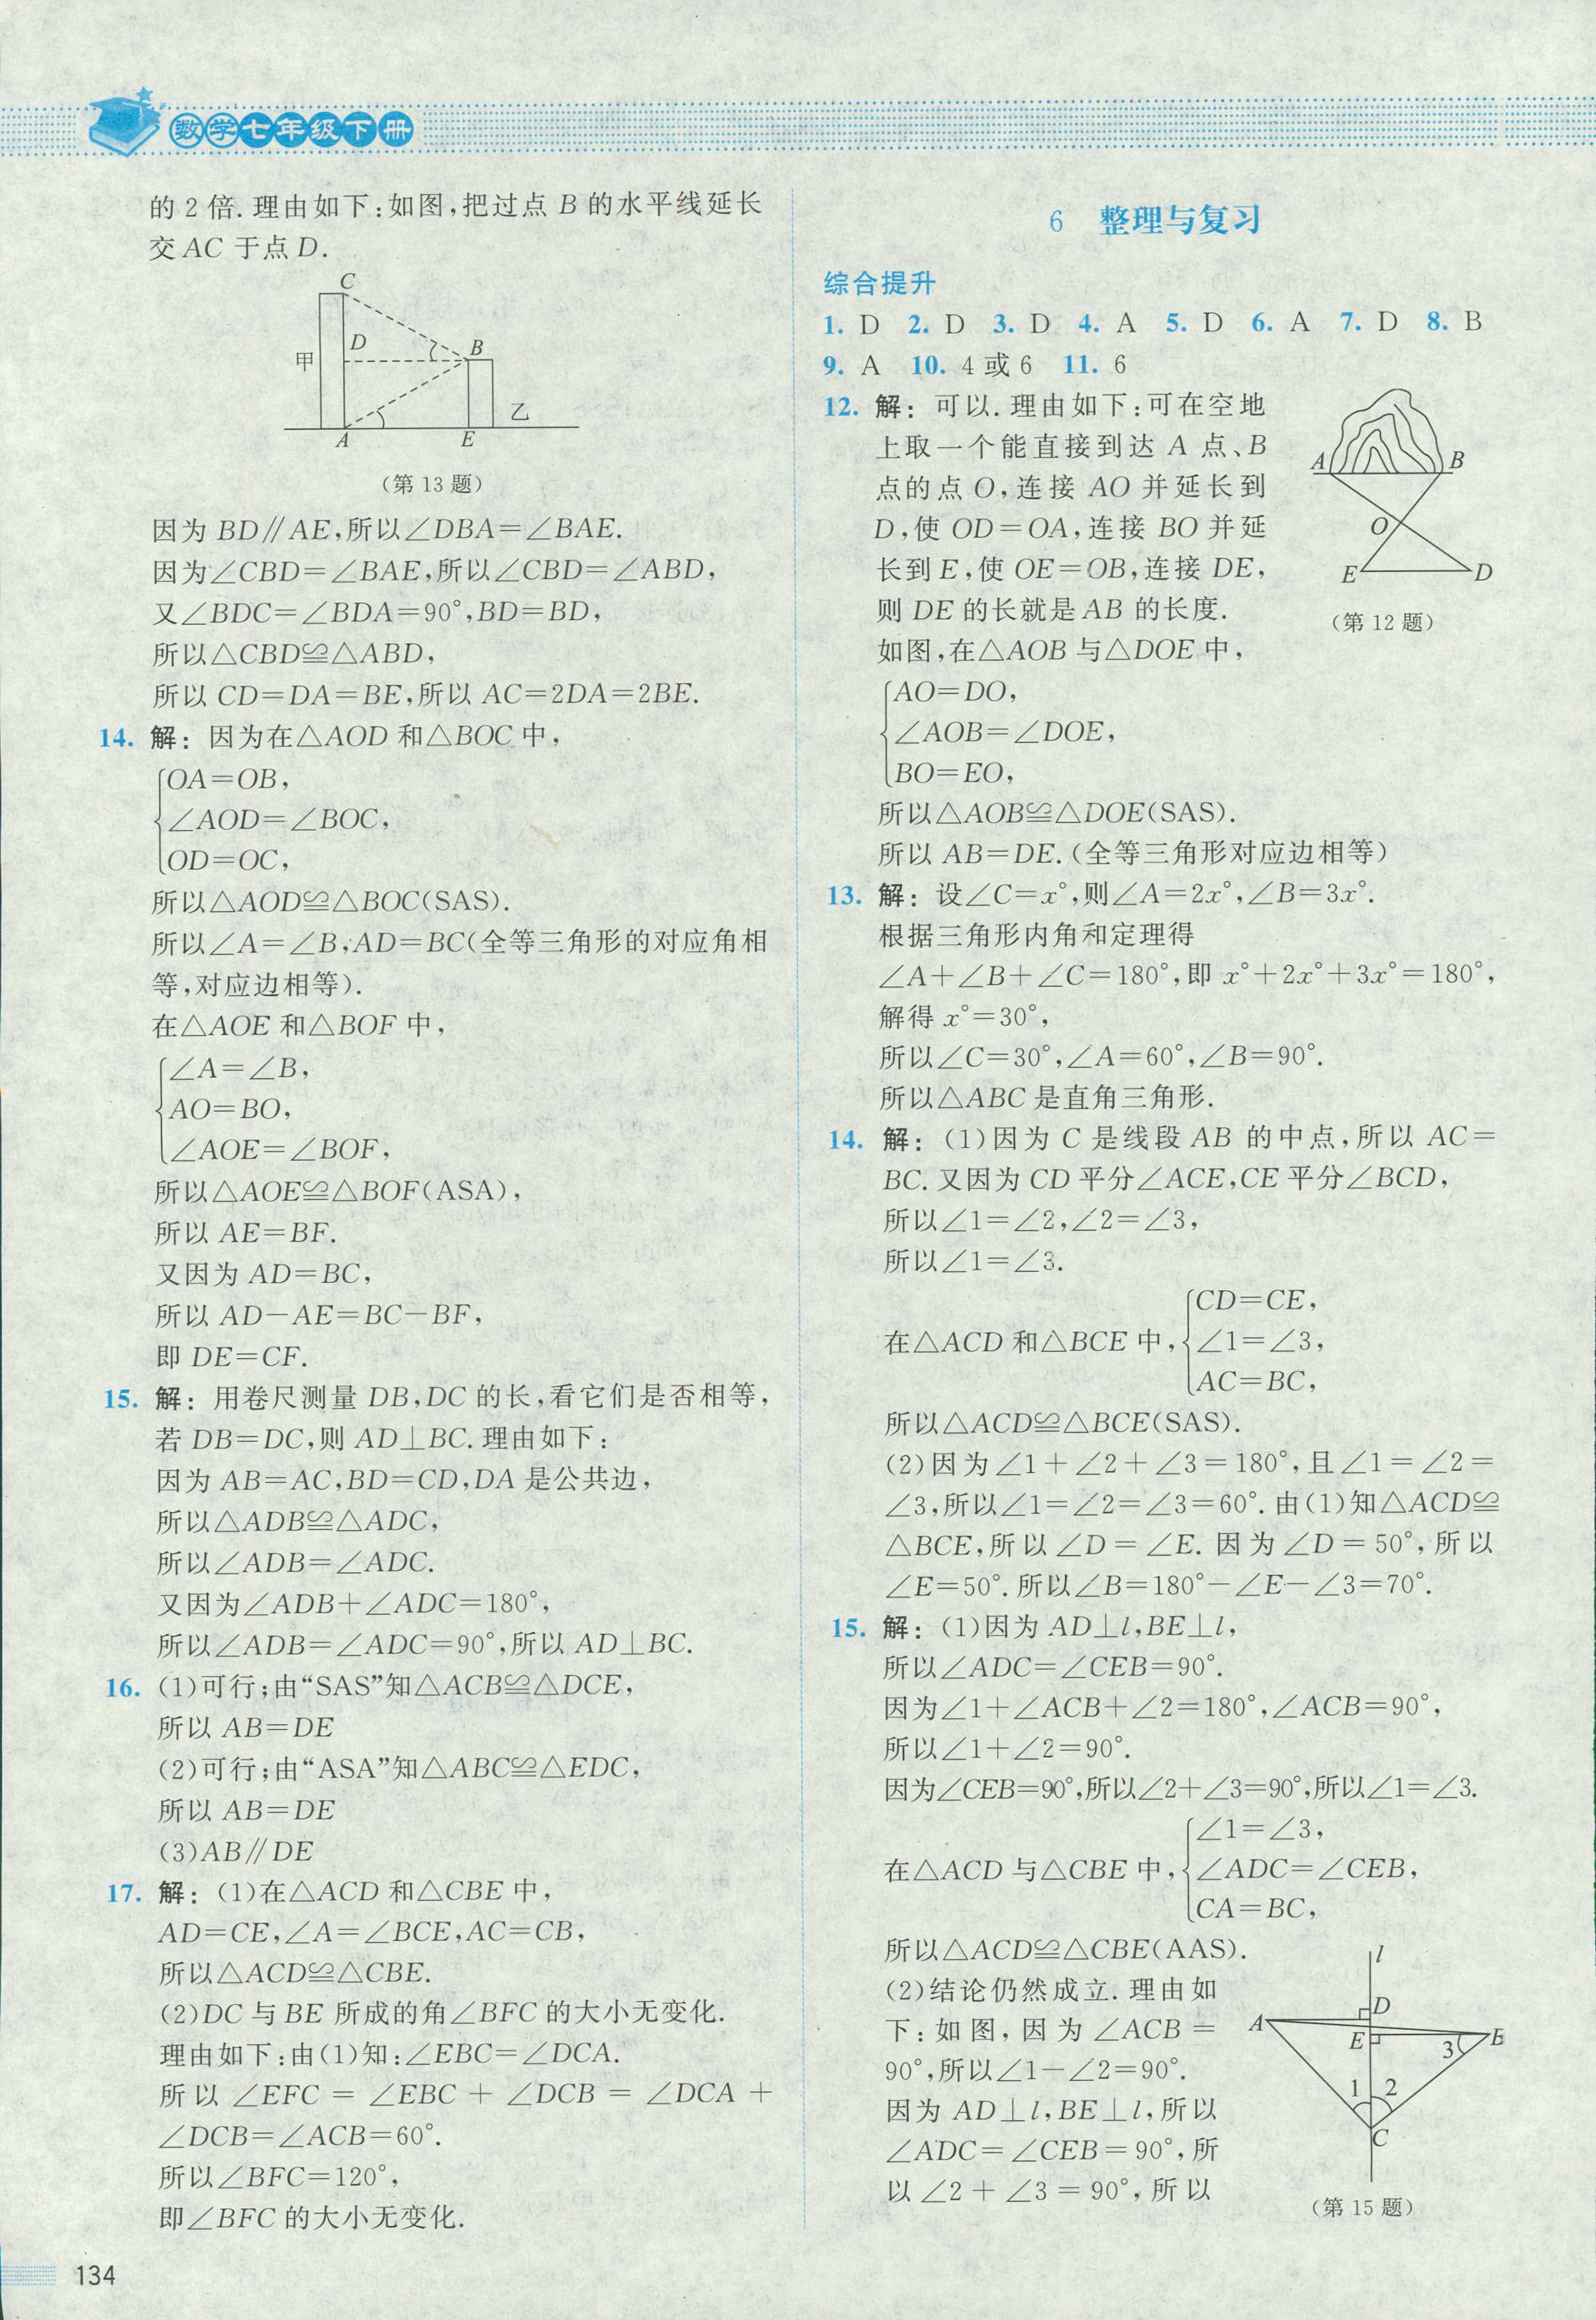 数学七年级下册
的 2 倍. 理由如下:如图,把过点 B 的水平线延长
交 AC 于点 D.
C
D
B
甲
乙
A
E
(第 13 题)
因为 BD∥AE,所以∠DBA=∠BAE.
因为∠CBD=∠BAE,所以∠CBD=∠ABD,
又∠BDC=∠BDA=90°,BD=BD,
所以△CBD≌△ABD,
所以 CD=DA=BE,所以 AC=2DA=2BE.
14. 解: 因为在△AOD 和△BOC 中,
OA=OB,
∠AOD=∠BOC,
OD=OC,
所以△AOD≌△BOC(SAS).
所以∠A=∠B,AD=BC(全等三角形的对应角相
等,对应边相等).
在△AOE 和△BOF 中,
∠A=∠B,
AO=BO,
∠AOE=∠BOF,
所以△AOE≌△BOF(ASA),
所以 AE=BF.
又因为 AD=BC,
所以 AD-AE=BC-BF,
即 DE=CF.
15. 解: 用卷尺测量 DB,DC 的长,看它们是否相等,
若 DB=DC,则 AD⊥BC. 理由如下:
因为 AB=AC,BD=CD,DA 是公共边,
所以△ADB≌△ADC,
所以∠ADB=∠ADC.
又因为∠ADB+∠ADC=180°,
所以∠ADB=∠ADC=90°,所以 AD⊥BC.
16. (1)可行;由“SAS”知△ACB≌△DCE,
所以 AB=DE
(2)可行;由“ASA”知△ABC≌△EDC,
所以 AB=DE
(3)AB∥DE
17. 解: (1)在△ACD 和△CBE 中,
AD=CE,∠A=∠BCE,AC=CB,
所以△ACD≌△CBE.
(2)DC 与 BE 所成的角∠BFC 的大小无变化.
理由如下:由(1)知:∠EBC=∠DCA.
所以 ∠EFC = ∠EBC + ∠DCB = ∠DCA +
∠DCB=∠ACB=60°.
所以∠BFC=120°,
即∠BFC 的大小无变化.
134
6 整理与复习
综合提升
1. D 2. D 3. D 4. A 5. D 6. A 7. D 8. B
9. A 10. 4 或 6 11. 6
12. 解: 可以. 理由如下:可在空地
上取一个能直接到达 A 点、B
点的点 O,连接 AO 并延长到
D,使 OD=OA,连接 BO 并延
长到 E,使 OE=OB,连接 DE,
则 DE 的长就是 AB 的长度.
如图,在△AOB 与△DOE 中,
A
B
O
E
D
(第 12 题)
AO=DO,
∠AOB=∠DOE,
BO=EO,
所以△AOB≌△DOE(SAS).
所以 AB=DE. (全等三角形对应边相等)
13. 解: 设∠C=x°,则∠A=2x°,∠B=3x°.
根据三角形内角和定理得
∠A+∠B+∠C=180°,即 x°+2x°+3x°=180°,
解得 x°=30°,
所以∠C=30°,∠A=60°,∠B=90°.
所以△ABC 是直角三角形.
14. 解: (1)因为 C 是线段 AB 的中点,所以 AC=
BC. 又因为 CD 平分∠ACE,CE 平分∠BCD,
所以∠1=∠2,∠2=∠3,
所以∠1=∠3.
CD=CE,
在△ACD 和△BCE 中, ∠1=∠3,
AC=BC,
所以△ACD≌△BCE(SAS).
(2)因为∠1+∠2+∠3=180°,且∠1=∠2=
∠3,所以∠1=∠2=∠3=60°. 由(1)知△ACD≌
△BCE,所以∠D=∠E. 因为∠D=50°,所以
∠E=50°. 所以∠B=180°-∠E-∠3=70°.
15. 解: (1)因为 AD⊥l,BE⊥l,
所以∠ADC=∠CEB=90°.
因为∠1+∠ACB+∠2=180°,∠ACB=90°,
所以∠1+∠2=90°.
因为∠CEB=90°,所以∠2+∠3=90°,所以∠1=∠3.
∠1=∠3,
在△ACD 与△CBE 中, ∠ADC=∠CEB,
CA=BC,
所以△ACD≌△CBE(AAS).
(2)结论仍然成立. 理由如
下:如图,因为 ∠ACB =
90°,所以∠1-∠2=90°.
因为 AD⊥l,BE⊥l,所以
∠ADC=∠CEB=90°,所
以 ∠2 + ∠3 = 90°,所以
l
D
A
E
3
B
1
2
C
(第 15 题)